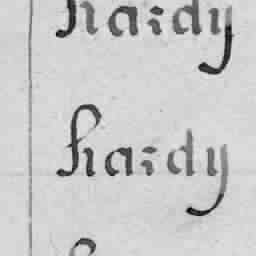 hardy
hardy